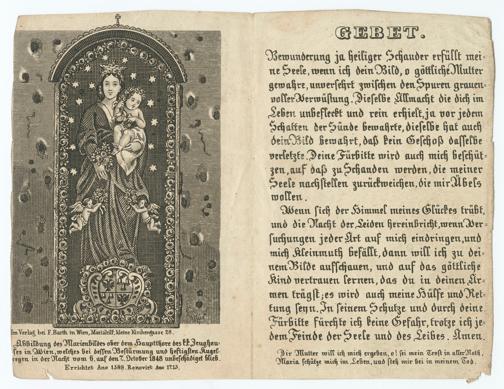 Im Verlag bei F. Barth in Wien, Mariahilf, kleine Kirchengasse 28.
Abbildung des Marienbildes ober dem Hauptthore des kk. Zeughau-
ses in Wien, welches bei dessen Bestürmung und heftigsten Kugel-
regen in der Nacht vom 6. auf den 7. October 1848 unbeschädigt blieb.
Errichtet Ano 1589. Renovirt Ano 1713.
GEBET.
Bewunderung ja heiliger Schauder erfüllt mei-
ne Seele, wenn ich dein Bild, o göttliche Mutter
gewahre, unversehrt zwischen den Spuren grauen-
voller Verwüstung. Dieselbe Allmacht die dich im
Leben unbefleckt und rein erhielt, ja vor jedem
Schatten der Sünde bewahrte, dieselbe hat auch
dein Bild bewahrt, daß kein Geschoß dasselbe
verletzte. Deine Fürbitte wird auch mich beschüt-
zen, auf daß zu Schanden werden, die meiner
Seele nachstellen zurückweichen, die mir Übels
wollen.
Wenn sich der Himmel meines Glückes trübt,
und die Nacht der Leiden hereinbricht, wenn Ver-
suchungen jeder Art auf mich eindringen, und
mich Kleinmuth befällt, dann will ich zu dei-
nem Bilde aufschauen, und auf das göttliche
Kind vertrauen lernen, das du in deinen Ar-
men trägst; es wird auch meine Hülfe und Ret-
tung seyn. In seinem Schutze und durch deine
Fürbitte fürchte ich keine Gefahr, trotze ich je-
dem Feinde der Seele und des Leibes. Amen.
Dir Mutter will ich mich ergeben, o! sei mein Trost in aller Noth,
Maria schütze mich im Leben, und steh mir bei in meinem Tod.